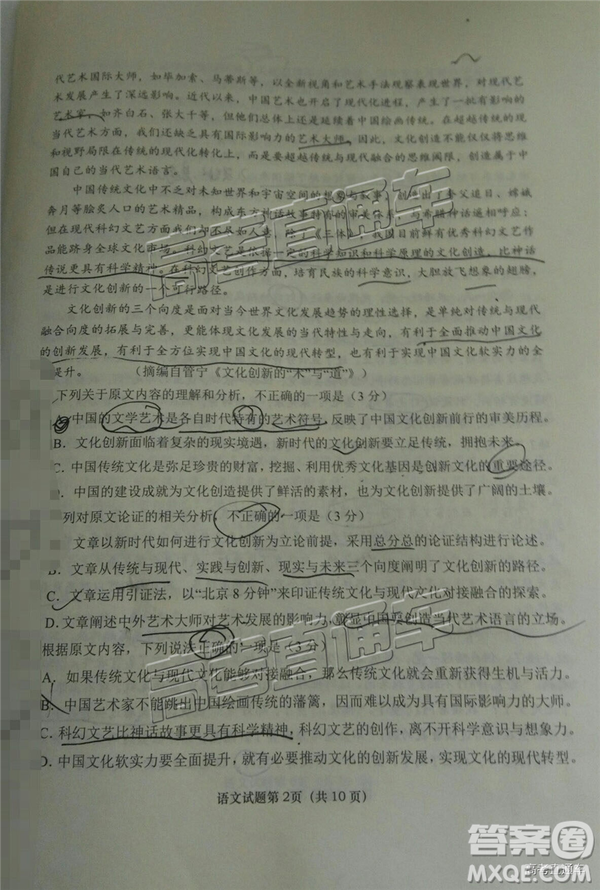 代艺术国际大师，如毕加索、马蒂斯等，以全新视角和艺术手法观察表现世界，对现代艺
术发展产生了深远影响。近代以来，中国艺术也开启了现代化进程，产生了一批有影响的
艺术家，如齐白石、张大千等，但总体上还是延续或超越传统的现代化，在超越传统的现
当代艺术方面，我们还缺乏具有国际影响力的艺术大师。因此，文化创新不能仅仅将思维
和视野局限在传统的现代化转化上，而是要超越传统与现代融合的思维阈限，创造属于中
国自己的当代艺术语言。
中国传统文化中不乏对未知世界和宇宙空间的想象与叙事，创造了夸父追日、嫦娥
奔月等脍炙人口的艺术精品，
但在现代科幻文艺方面却不及如人意。除《三体》，我国目前鲜有优秀科幻文艺作
品能跻身全球文化市场。科幻文艺是依据一定的科学知识和科学原理的文化创造，比神话
传说更具有科学精神。在科幻文艺创作方面，培育民族的科学意识，大胆放飞想象的翅膀，
是进行文化创新的一个可行路径。
文化创新的三个向度是面对当今世界文化发展趋势的理性选择，是单纯延续传统与现代
融合向度的拓展与完善，更能体现文化发展的当代特性与走向，有利于全面推动中国文化
的创新发展，有利于全方位实现中国文化的现代转型，也有利于实现中国文化软实力的全
提升。（摘编自管宁《文化创新的“术”与“道”》）
下列关于原文内容的理解和分析，不正确的一项是（3 分）
中国的文学艺术是各自时代特有的艺术符号，反映了中国文化创新前行的审美历程。
B．文化创新面临着复杂的现实境遇，新时代的文化创新要立足传统，拥抱未来。
C．中国传统文化是弥足珍贵的财富，挖掘、利用优秀文化基因是创新文化的重要途径。
．中国的建设成就为文化创造提供了鲜活的素材，也为文化创新提供了广阔的土壤。
列对原文论证的相关分析，不正确的一项是（3 分）
文章以新时代如何进行文化创新为立论前提，采用总分总的论证结构进行论证。
B．文章从传统与现代、实践与创新、现实与未来三个向度阐明了文化创新的路径。
C．文章运用引证法，以“北京 8 分钟”来印证传统文化与现代对接融合的探索。
D．文章阐述中外艺术大师对艺术发展的影响力，意显中国要创造当代艺术语言的立场。
根据原文内容，下列说法正确的一项是（3 分）
A．如果传统文化与现代文化能够对接融合，那么传统文化就能重新获得生机与活力。
B．中国艺术家不能跳出中国绘画传统的藩篱，因而难以产生具有国际影响力的大师。
C．科幻文艺比神话故事更具有科学精神，科幻文艺的创作，离不开科学意识与想象力。
D．中国文化软实力要全面提升，就有必要推动文化的创新发展，实现文化的现代转型。
语文试题第 2页（共 10 页）
高考直通车
高考直通车
答案圈
MXQE.COM